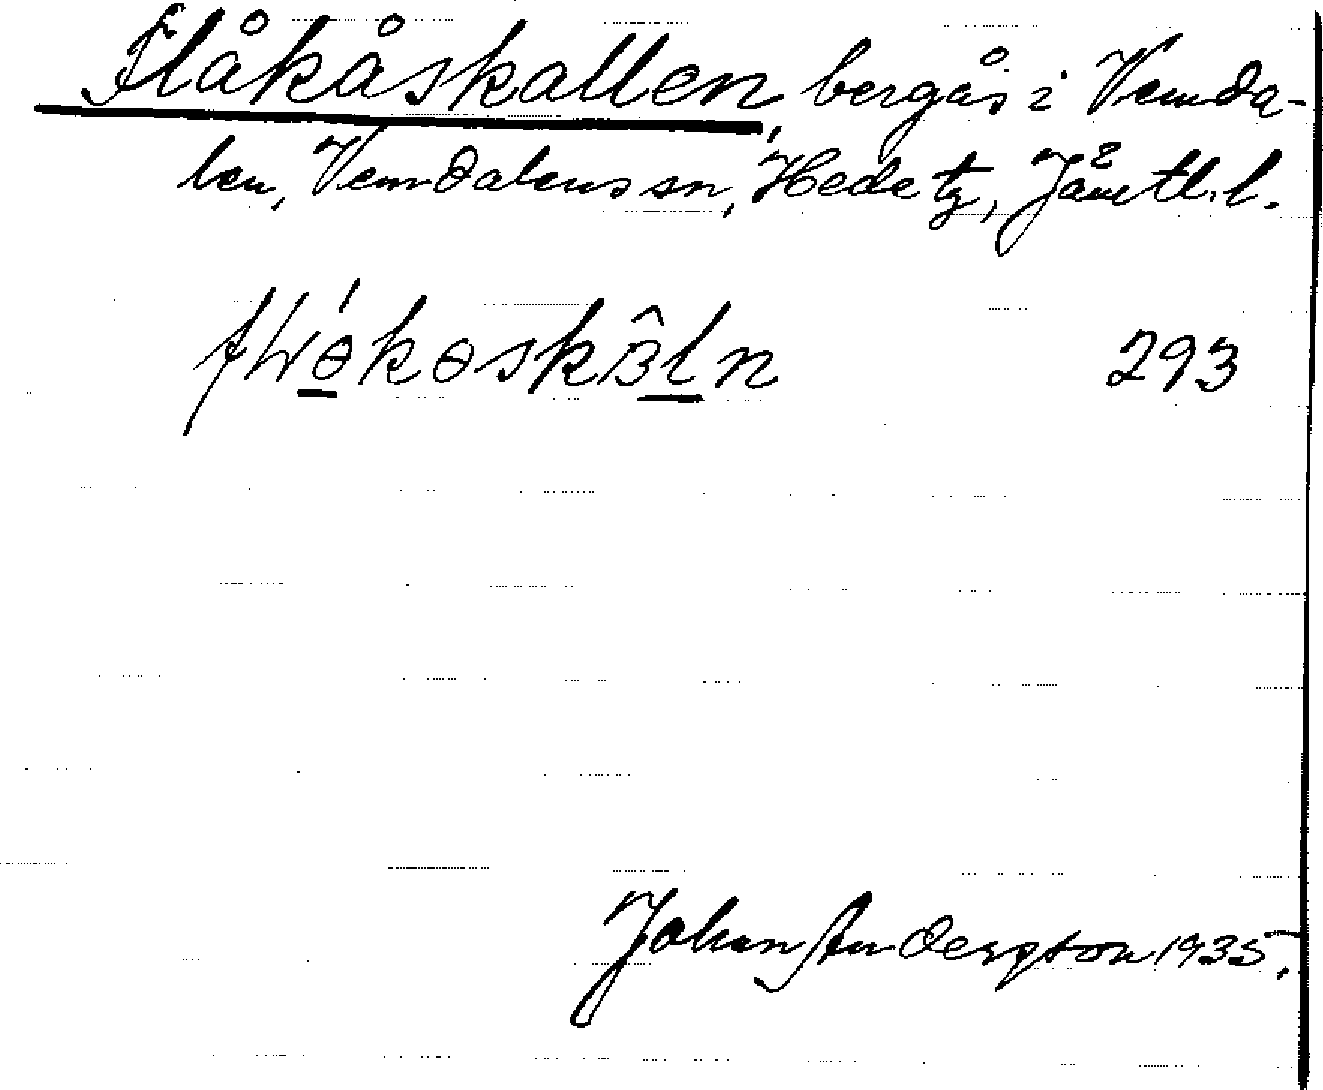 Flåkåskallen, bergås i Vemda-
len, Vemdalens sn, Hede tg, Jämtl. l.
293
Johan Anderzson 1935.